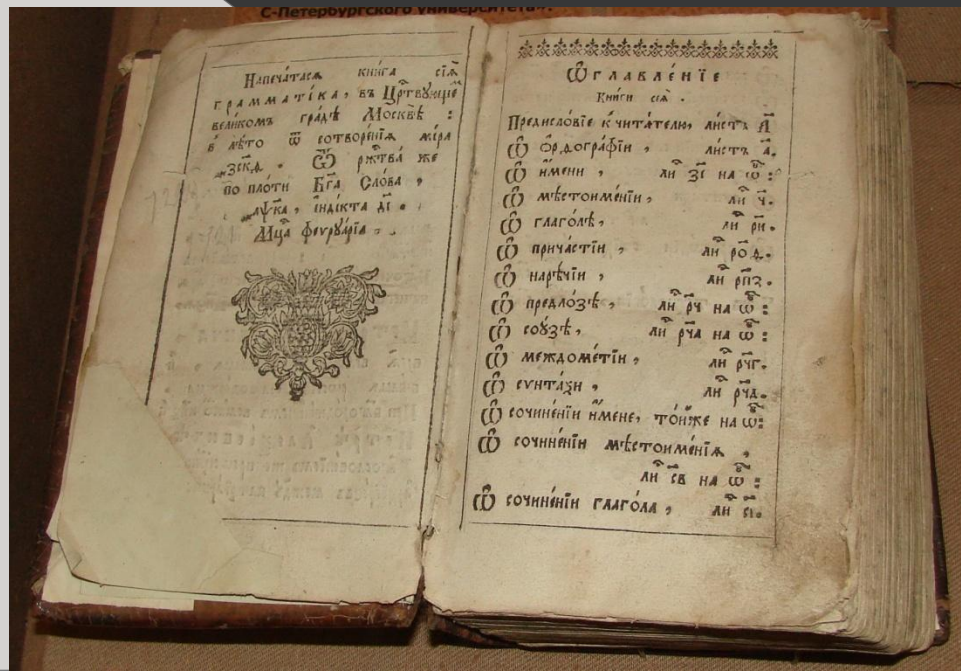 С-Петербургского университета».
Напеча́тасѧ кни́га сїѧ̀
грамма́тїка, въ Цр҃твующе
вели́комъ гра́дѣ Москвѣ̀ :
в лѣ́то ѿ сотворе́нїѧ мі́ра
҂зск҃ѳ . Ѿ ржⷭ҇тва́ же
по пло́ти Бг҃а Сло́ва ,
҂аѱк҃а , інді́кта д҃і .
Мц҃а феѵруа́рїа .
Ѡ҆главле́нїе
Кни́ги сеѧ̀ .
Предисло́вїе к чита́телю, ли́стъ а҃
Ѡ҆ ѻ҆рѳогра́фїи , ли́стъ а҃.
Ѡ҆ и҆́мени , ли з҃і на ѿ :
Ѡ҆ мѣстоиме́нїи , ли ч҃.
Ѡ҆ глаго́лѣ , ли рн҃.
Ѡ҆ прича́стїи , ли ро҃д.
Ѡ҆ нарѣ́чїи , ли рп҃з.
Ѡ҆ предло́зѣ , ли рч҃ на ѿ :
Ѡ҆ сою́зѣ , ли рч҃а на ѿ :
Ѡ҆ междоме́тїи , ли рч҃г.
Ѡ҆ сѵнта́ѯи , ли рч҃д.
Ѡ҆ сочине́нїи и҆́мене, то́йже на ѿ :
Ѡ҆ сочине́нїи мѣстоиме́нїѧ ,
ли с҃в на ѿ :
Ѡ҆ сочине́нїи глаго́ла , ли с҃і.